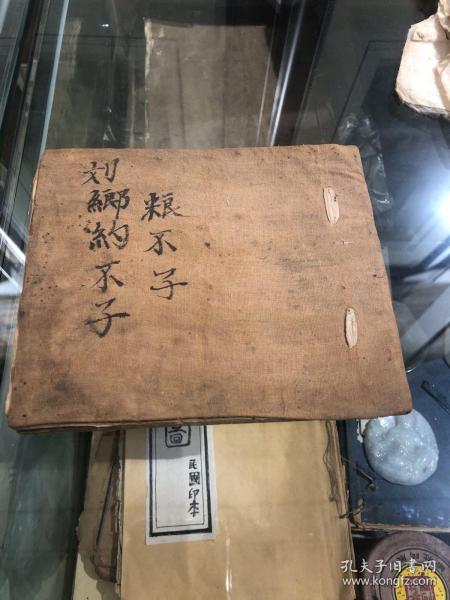 粮不子
刘鄉約不子
民國印本
孔夫子旧书网
www.kongfz.com